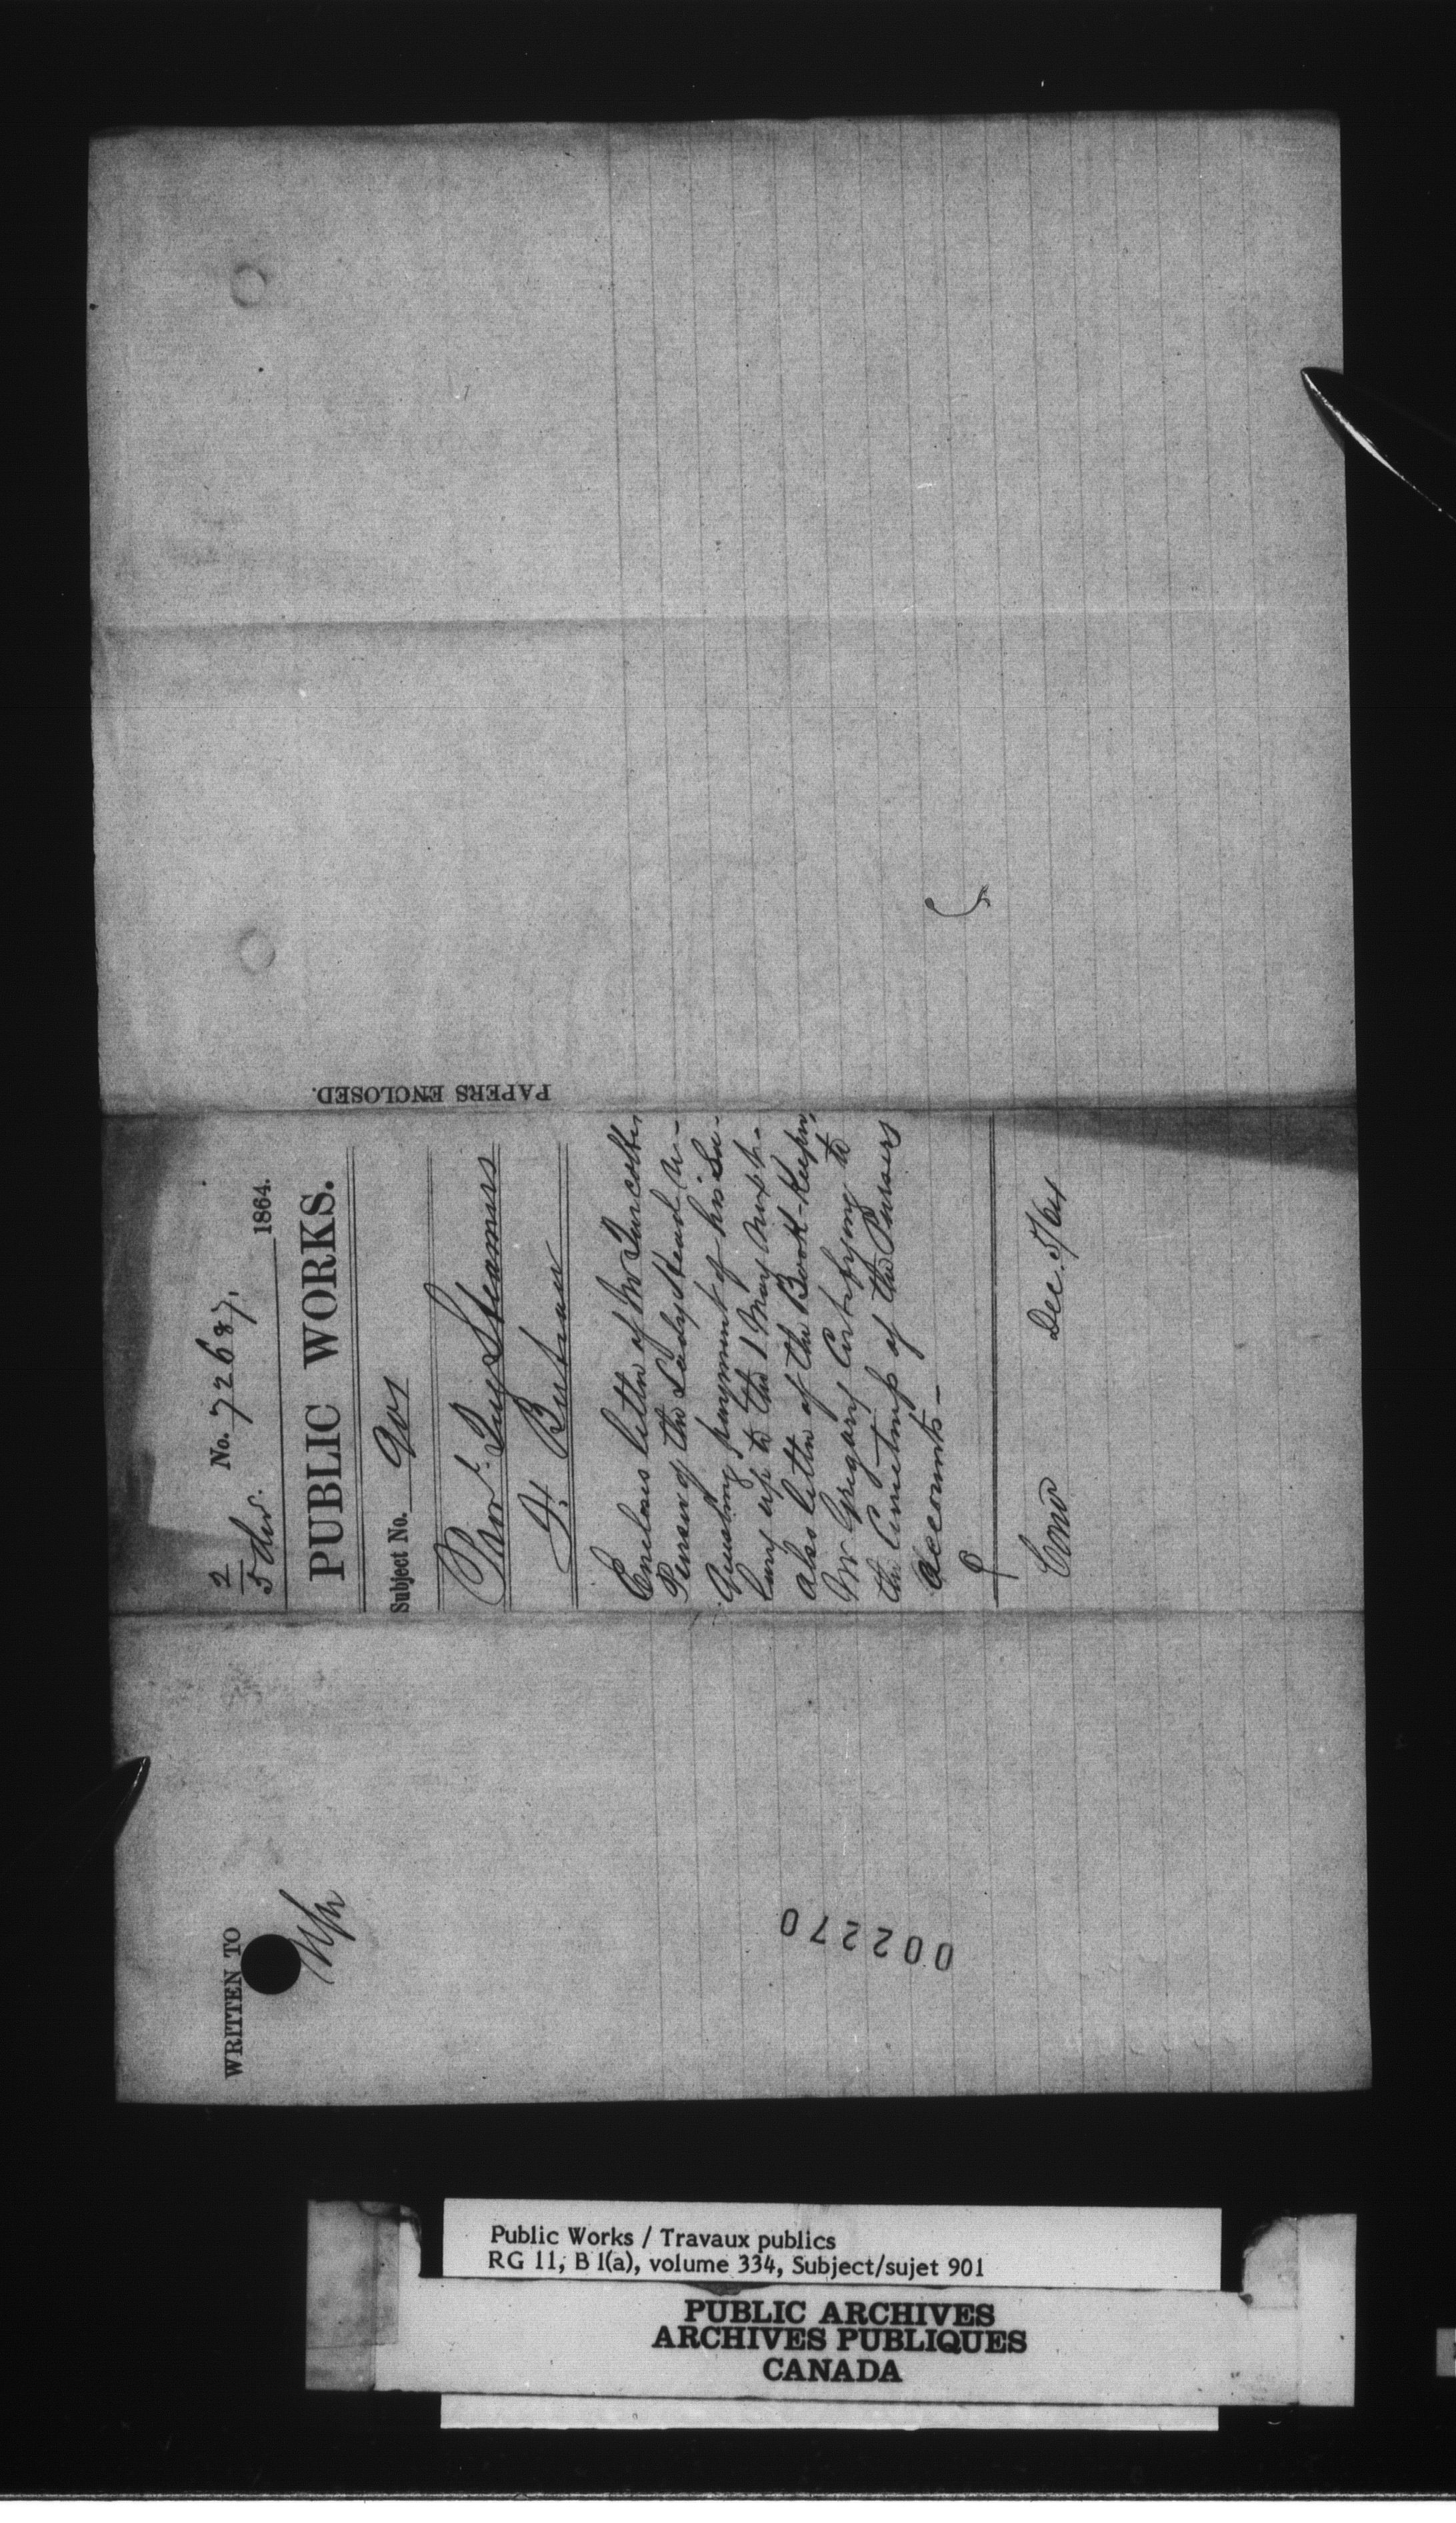 2/5 Decr. No. 72687, 1864.
PUBLIC WORKS.
Subject No. 901
Provl. Tug Steamers
F. Buteau
Encloses letter of Mr Turcotte,
Purser of the Lady Head re-
questing payment of his Sa-
lary up to the 1 May next.
also letter of the Book-Keeper,
Mr Gregory Certifying to
the Correctness of the Pursers
accounts—
Comr Dec. 5/64
PAPERS ENCLOSED.
WRITTEN TO
002270
Public Works / Travaux publics
RG 11, B 1(a), volume 334, Subject/sujet 901
PUBLIC ARCHIVES
ARCHIVES PUBLIQUES
CANADA